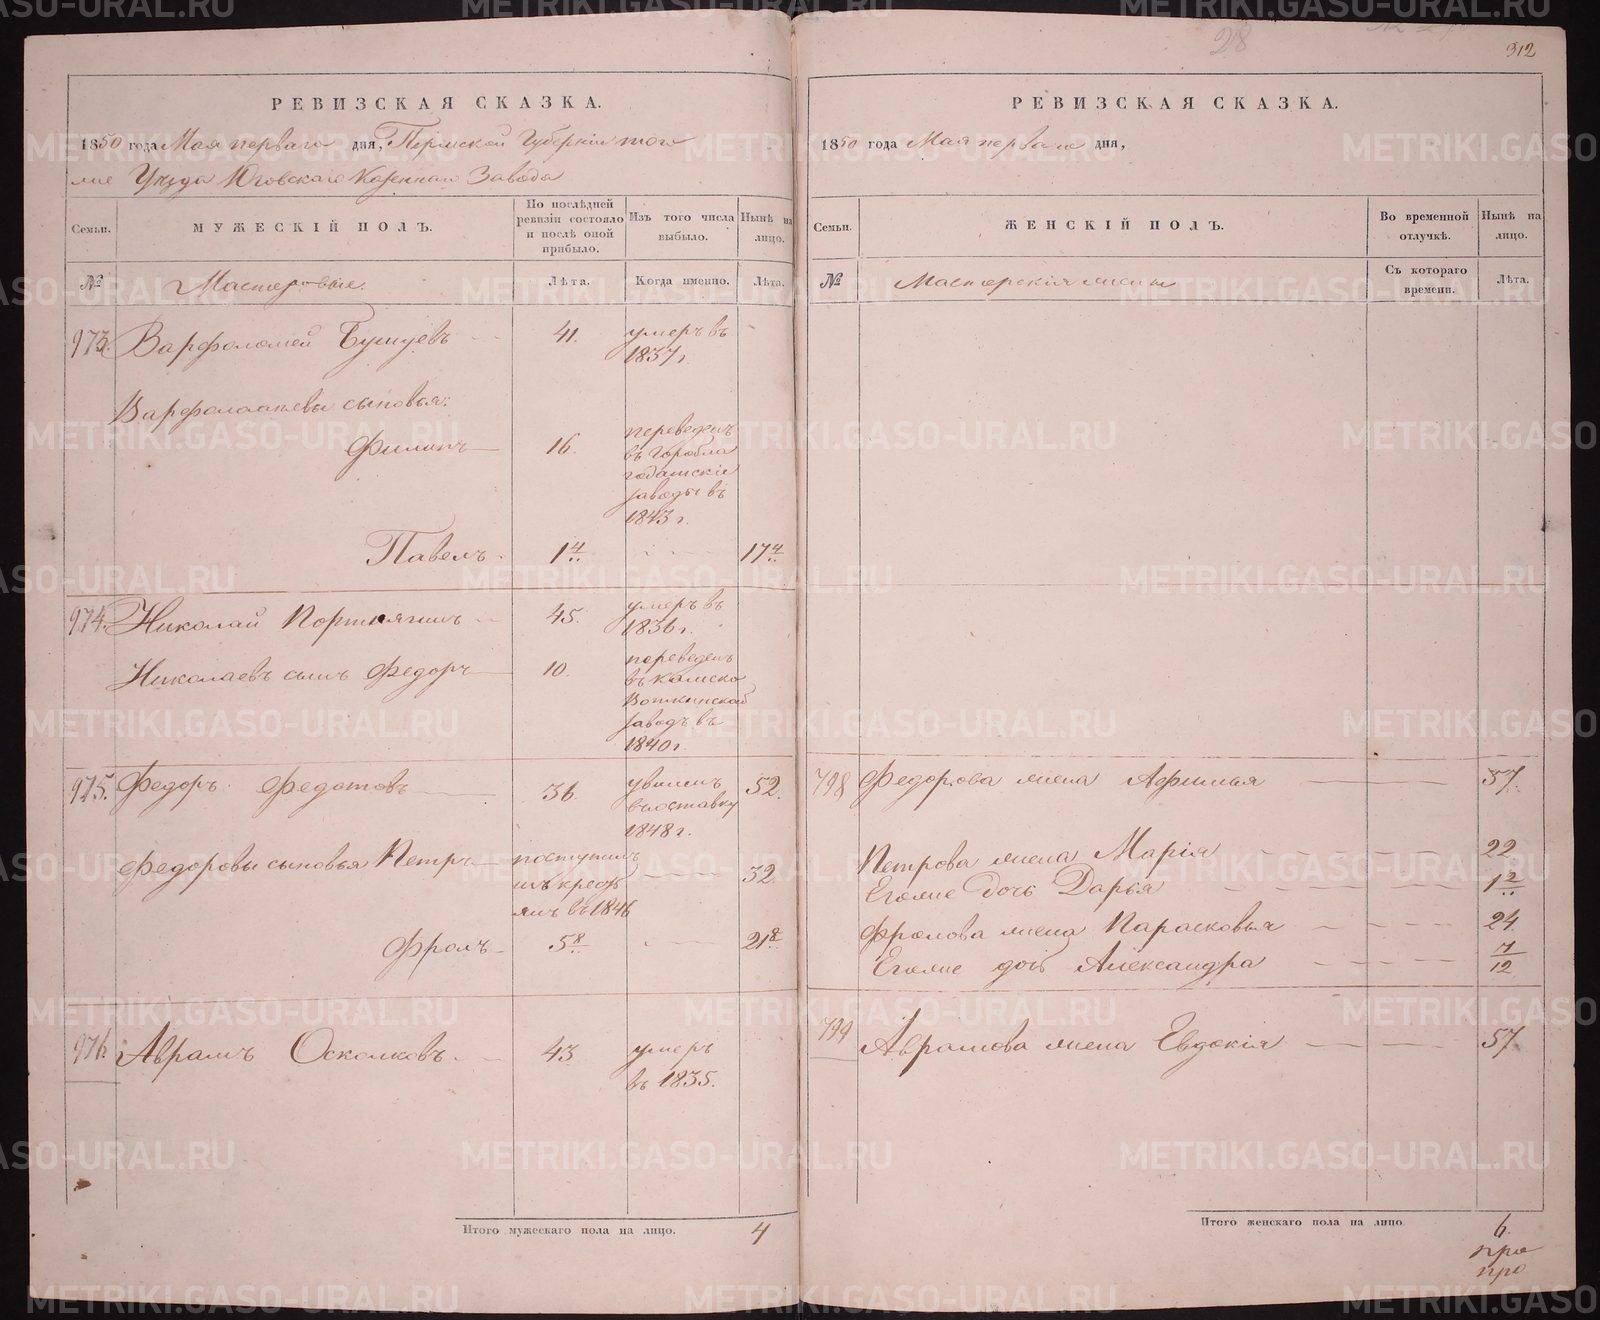 28
312
РЕВИЗСКАЯ СКАЗКА.
1850 года Мая перваго дня, Пермской Губерніи тогоже
Уѣзда Юговскаго Казеннаго Завода
Семьи.
МУЖЕСКІЙ ПОЛЪ.
По послѣдней ревизіи состояло и послѣ оной прибыло.
Изъ того числа выбыло.
Нынѣ на лицо.
№
Мастеровые.
Лѣта.
Когда именно.
Лѣта.
973. Варфоломей Бушуевъ 41. умеръ въ
1837 г.
Варфоломѣевы сыновья:
Филипъ 16. переведенъ
въ Горобла
годатскіе
заводы въ
1843 г.
Павелъ 1 4/.. 17 4/..
974. Николай Портнягинъ 45. умеръ въ
1836 г.
Николаевъ сынъ Федоръ 10. переведенъ
въ Камско
Воткинской
заводъ въ
1840 г.
975. Федоръ Федотовъ 36. уволенъ 52.
въ отставку
1848 г.
Федоровы сыновья Петръ поступилъ 32.
изъ кресть
янъ въ 1846
Фролъ 5 8/.. 21 8/..
976. Аврамъ Осколковъ 43. умеръ
въ 1835.
Итого мужескаго пола на лицо. 4
РЕВИЗСКАЯ СКАЗКА.
1850 года Мая перваго дня,
Семьи.
ЖЕНСКІЙ ПОЛЪ.
Во временной отлучкѣ.
Нынѣ на лицо.
№
Мастерскія жены
Съ котораго времени.
Лѣта.
798 Федорова жена Афимья 57.
Петрова жена Марія 22
Егоже дочь Дарья 1 2/..
Фролова жена Парасковья 24
Егоже дочь Александра 7/12
799 Аврамова жена Евдокія 57
Итого женскаго пола на лицо. 6.
METRIKI.GASO-URAL.RU